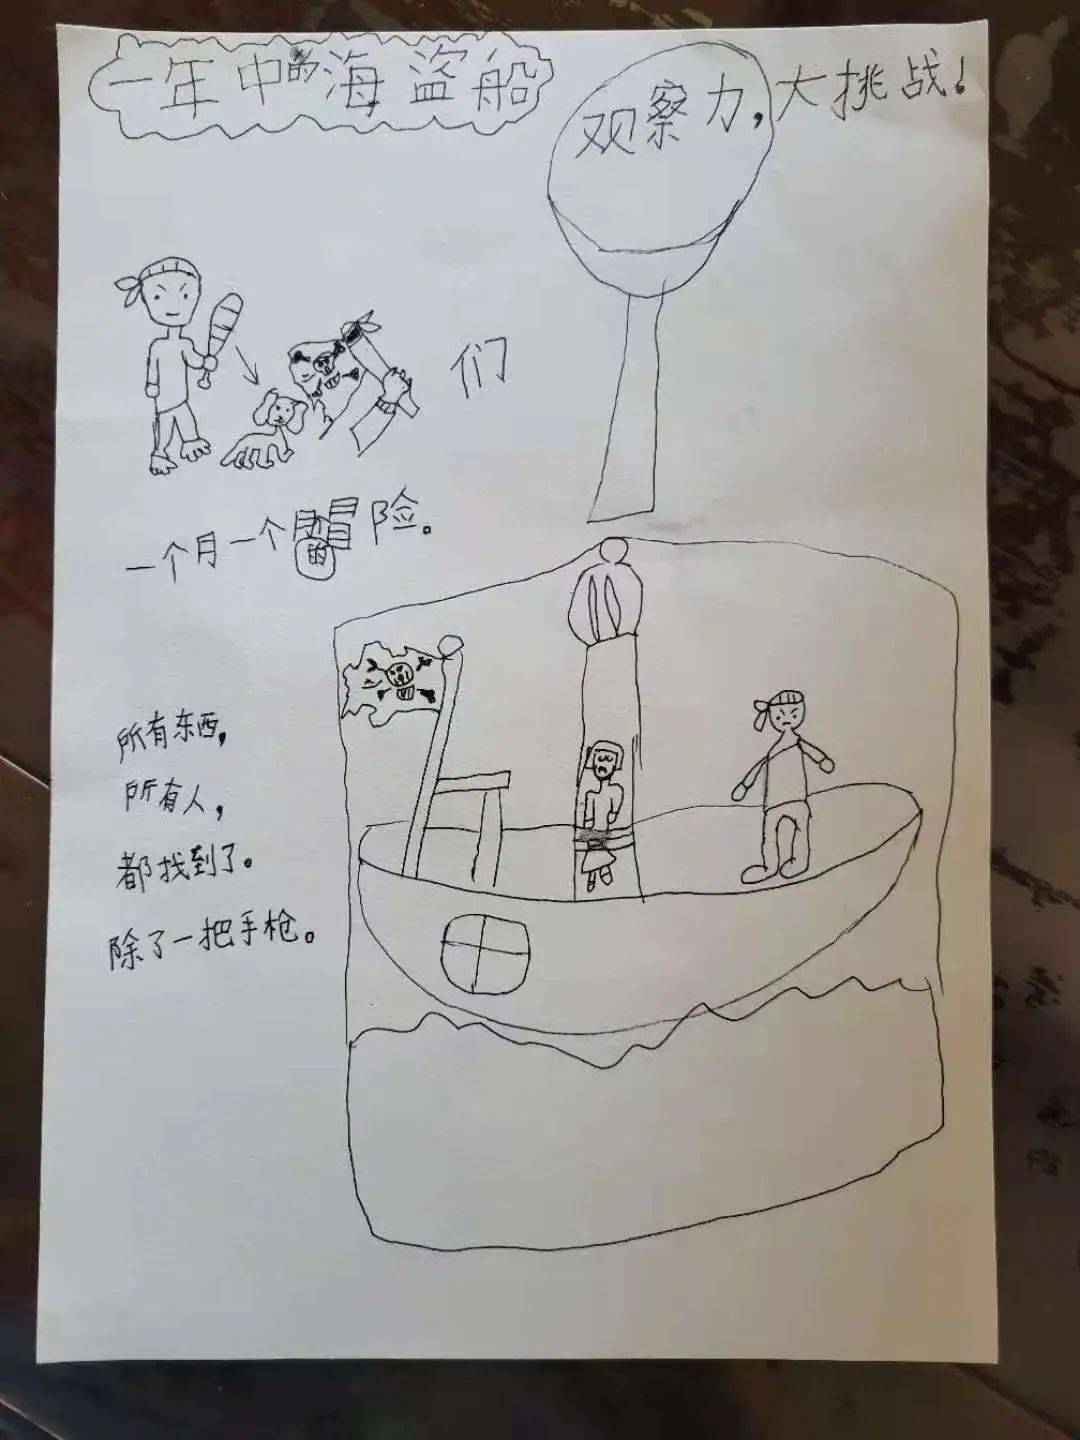 一年中的海盗船
观察力，大挑战！
们
一个月一个的冒险。
所有东西，
所有人，
都找到了。
除了一把手枪。